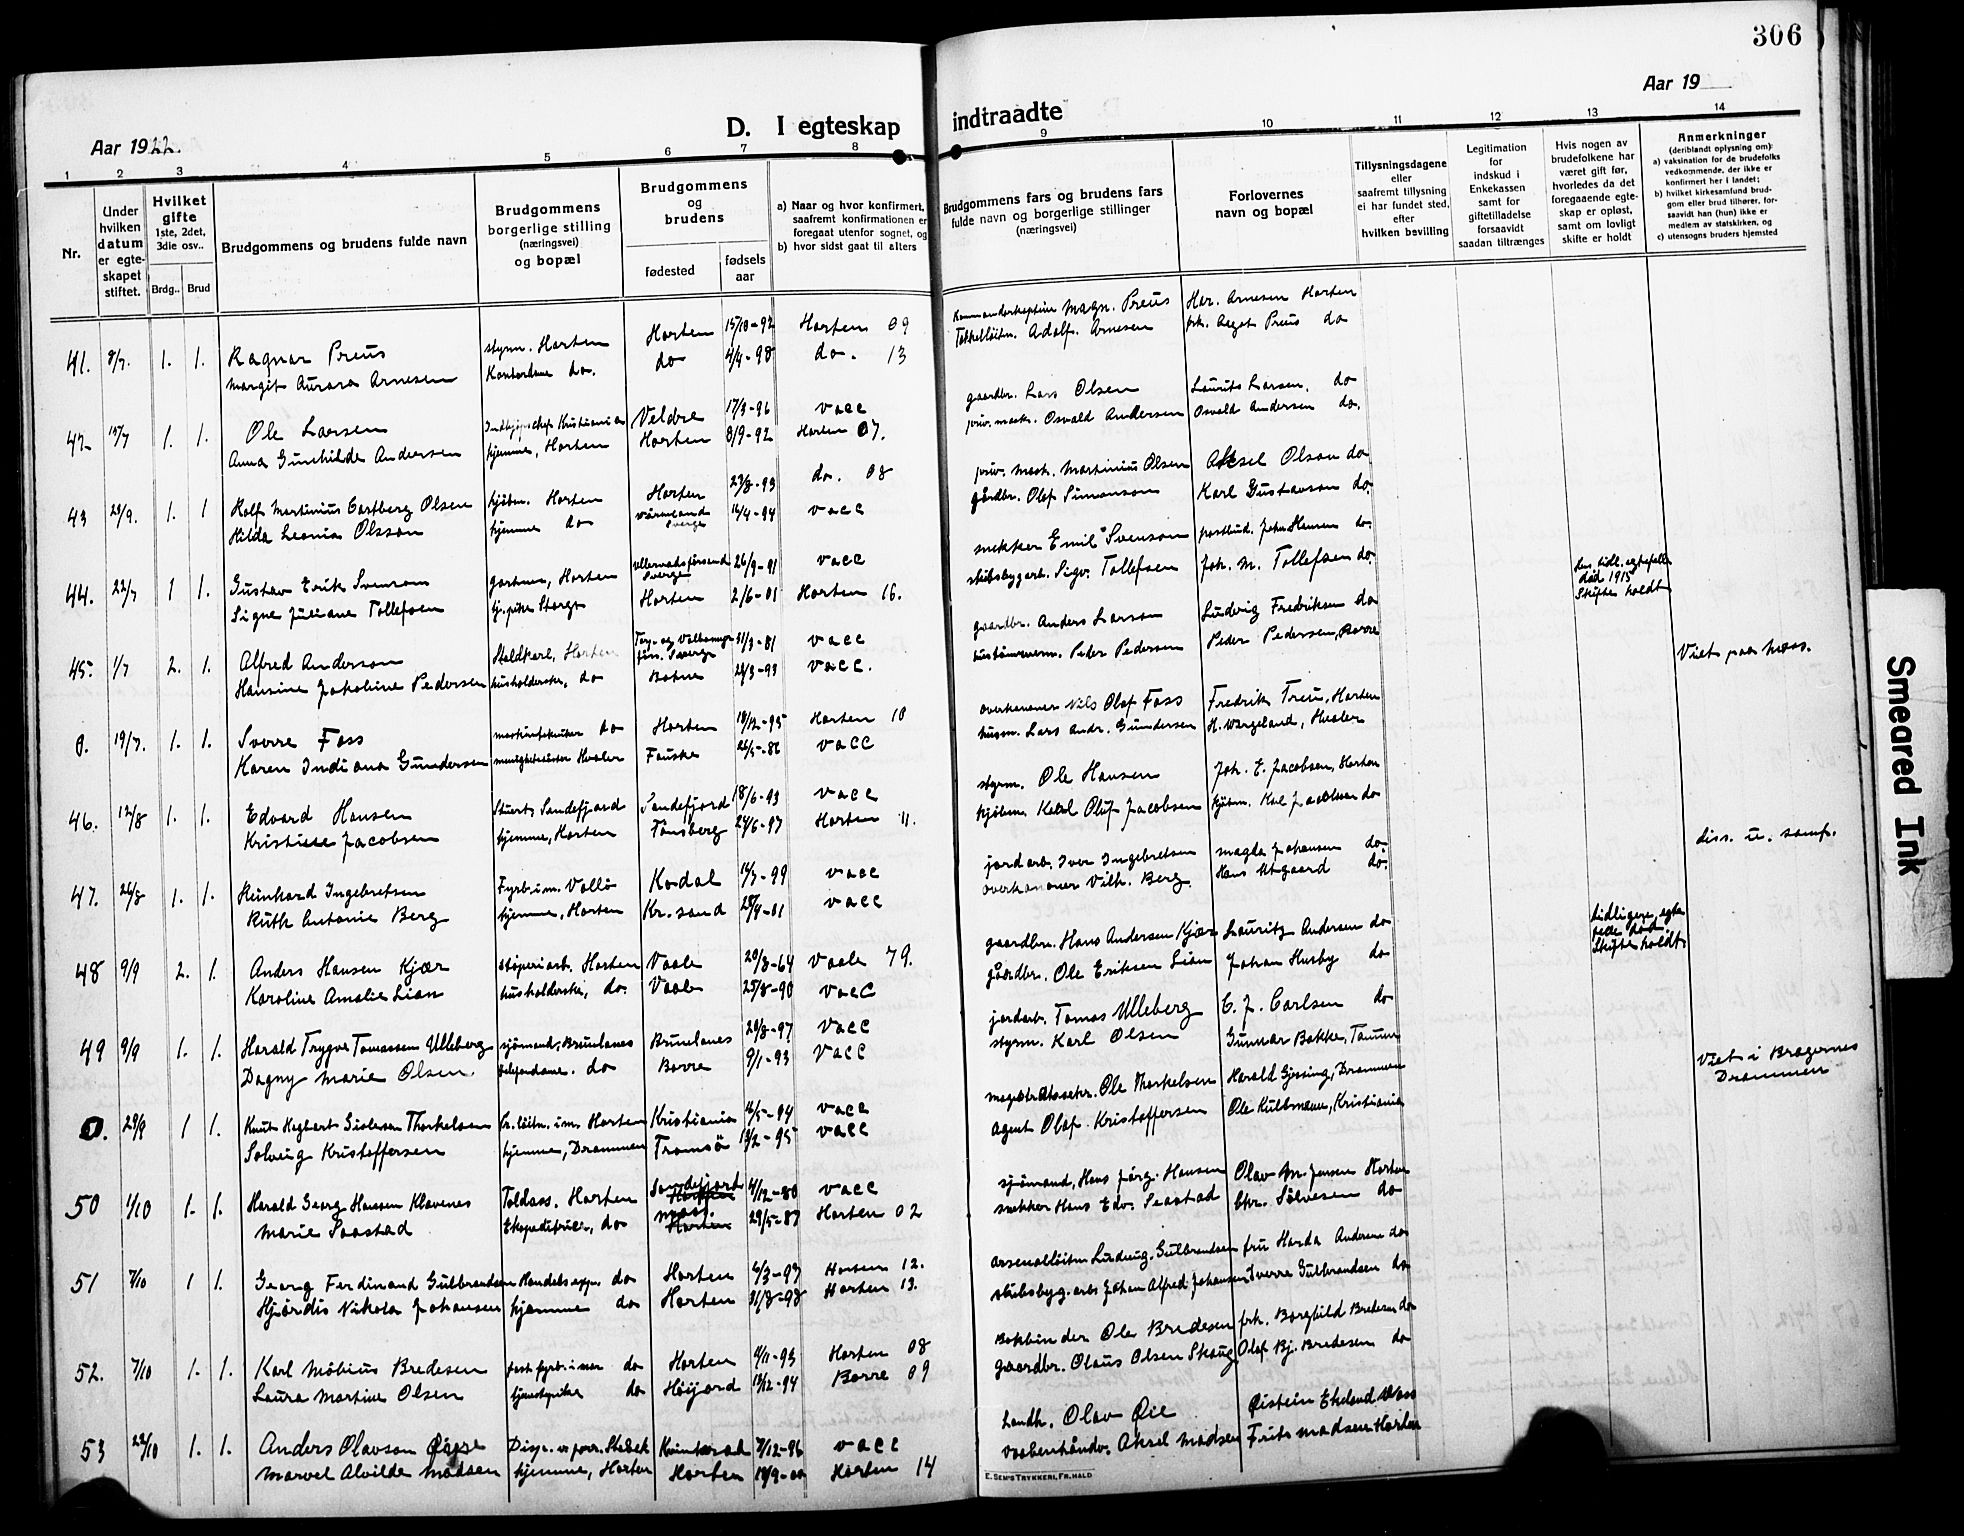 306
Aar 1922.
D. I egteskap
indtraadte
Aar 19
1 2 3 4 5 6 7 8 9 10 11 12 13 14
Nr.
Under hvilken datum er egteskapet stiftet.
Hvilket gifte 1ste, 2det, 3die osv..
Brdg.. Brud
Brudgommens og brudens fulde navn
Brudgommens borgerlige stilling (næringsvei) og bopæl
Brudgommens og brudens
fødested
fødsels aar
a) Naar og hvor konfirmert, saafremt konfirmationen er foregaat utenfor sognet, og
b) hvor sidst gaat til alters
Brudgommens fars og brudens fars fulde navn og borgerlige stillinger (næringsvei)
Forlovernes navn og bopæl
Tillysningsdagene eller saafremt tillysning ei har fundet sted, efter hvilken bevilling
Legitimation for indskud i Enkekassen samt for giftetilladelse forsaavidt saadan tiltrænges
Hvis nogen av brudefolkene har været gift før, hvorledes da det foregaaende egteskap er opløst, samt om lovligt skifte er holdt
Anmerkninger
(deriblandt oplysning om):
a) vaksination for de brudefolks vedkommende, der ikke er konfirmert her i landet;
b) hvilket kirkesamfund brudgom eller brud tilhører, forsaavidt han (hun) ikke er medlem av statskirken, og
c) utensogns bruders hjemsted
41. 8/7. 1. 1. Ragnar Preus styrm. Horten Horten 15/10-92 Horten 09 Kommanderkaptein Magn. Preus Har. Arnesen Horten
Margit Aurora Arnesen Kontordame do. do 4/4-98 do. 13 Takkelløitn. Adolf Arnesen frk. Aagot Preus do
42 15/7 1. 1. Ole Larsen Veldre 17/9-96 vacc gaardbr. Lars Olsen Laurits Larsen, do
Anna Gunhilde Andersen hjemme, Horten Horten 8/9-92 Horten 07. priv. mask. Osvald Andersen Osvald Andersen do.
43 1. 1 Rolf Martinius Castberg Olsen Horten Horten 23/8-93 do. 08 priv. mask. Martinius Olsen Aksel Olsen do
Hilda Leonia Olsson hjemme do Värmland Sverge 16/4-94 vacc gårdbr. Olof Simonsson Karl Gustavson do.
44. 22/7 1 1. Gustav Erik Svenson gartner, Horten Sverge 26/9-91 vacc snekker Emil Svenson postbud. Johs Hansen do.
Signe Juliane Tollefsen Horten 2/6-01 Horten 16. skibsbygarb. Sigv. Tollefsen Joh. M. Tollefsen do.
45. 1/7 2. 1. Alfred Anderson Staldkarl, Horten Sverge 31/3-81 vacc gaardbr. Anders Larson Ludvig Fredriksen do død 1915 Skifte holdt
Hansine Jakobine Pedersen husholderske, do Botne 24/3-93 vacc. Peder Pedersen Peder Pedersen, Borre Viet paa Moss.
0. 19/7. 1. 1. Sverre Foss do Horten 18/12-95 Horten 10 overkanoner Nils Olaf Foss Fredrik Treu, Horten
Karen Indiana Gundersen menighetssøster Hvaler Fauske 26/5-86 vacc husm. Lars Andr. Gundersen H. Wergeland, Hvaler
46. 12/8 1. 1. Edvard Hansen Stuert, Sandefjord Sandefjord 18/6-93 vacc styrm. Ole Hansen Joh. E. Jacobsen, Horten
Kristiane Jacobsen hjemme, Horten Tønsberg 24/6-97 Horten 11. Karl Oluf Jacobsen Karl Jacobsen do
47. 26/8 1. 1. Reinhard Ingebretsen Fyrb. i m. Vallø Kodal 14/7-99 vacc jordarb. Iver Ingebretsen Magda Johansen do. diss. u. samf.
Ruth Antonie Berg hjemme, Horten Kr.sand 28/4-01 vacc overkanoner Vilh. Berg. Hans Utgaard do.
48 9/9 2. 1. Anders Hansen Kjær støperiarb. Horten Vaale 20/8-64 Vaale 79. gaardbr. Hans Andersen Kjær Lauritz Andersen do tidligere egtefelle død. Skifte holdt
Karoline Amalie Lian husholderske, do. Vaale 25/8-90 vacc gårdbr. Ole Eriksen Lian Johan Husby do
49 9/9 1. 1. Harald Trygve Tomassen Ulleberg sjømand, Brunlanes Brunlanes 20/8-97 vacc jordarb. Tomas Ulleberg C. J. Carlsen do
Dagny Marie Olsen. do Borre 9/1-93 vacc styrm. Karl Olsen Gunnar Bakke, Tanum
0. 29/8 1 1. Knut Thorkelsen Pr. løitn. i m. Horten Kristiania 16/5-94 vacc Ole Thorkelsen Harald Gjessing, Drammen Viet i Bragernes Drammen
Solveig Kristoffersen hjemme, Drammen Tromsö 13/2-95 vacc agent Olaf Kristoffersen Ole Kristiania
50 1/10 1. 1. Harald Georg Hansen Klavenes Toldass. Horten Sandefjord 4/12-80 vacc sjømand, Hans Jørg. Hansen Olav M. Jensen Horten
Marie Saastad Ekspeditrice, do Moss. Horten 29/5-87 Horten 02 snekker Hans Edv. Saastad Chr. Sølvesen do
51 7/10 1 1. Georg Ferdinand Gulbrandsen Handelsagn. do Horten 6/3-97 Horten 12. Arsenalløitn Ludvig Gulbrandsen fru Harda Andersen do
Hjørdis Nikola Johansen hjemme do Horten 31/8-98 Horten 13. skibsbyg.arb. Johan Alfred Johansen Sverre Gulbrandsen do
52. 7/10 1. 1. Karl Möbius Bredesen do Horten 4/11-93 Horten 08 Bokbinder Ole Bredesen frk. Borghild Bredesen do
Laura Martine Olsen tjenestepike do Høijord 13/12-94 Borre 09 gaardbr. Olaus Olsen Skaug Olaf Bj. Bredesen do
53 22/10 1. 1. Anders Olavson 7/12-96 vacc Landh. Olav Øie Øistein Ekeland Voss
Marvel Alvilde Madsen hjemme, Horten Horten Horten 14 vaabenhåndv. Aksel Madsen Frits Madsen Horten
E. SEM'S TRYKKERI, FR.HALD
Smeared Ink